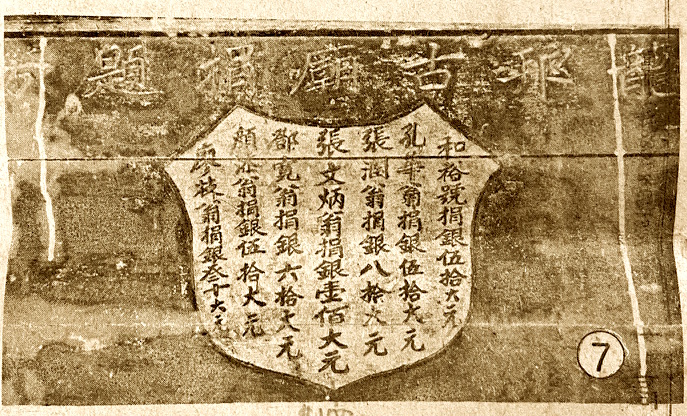 古廟捐題
和裕號捐銀伍拾大元
孔華翁捐銀伍拾大元
張潤翁捐銀八拾大元
張文炳翁捐銀壹佰大元
鄒竟翁捐銀六拾大元
顏 翁捐銀伍拾大元
廖枝翁捐銀叁十大元
7